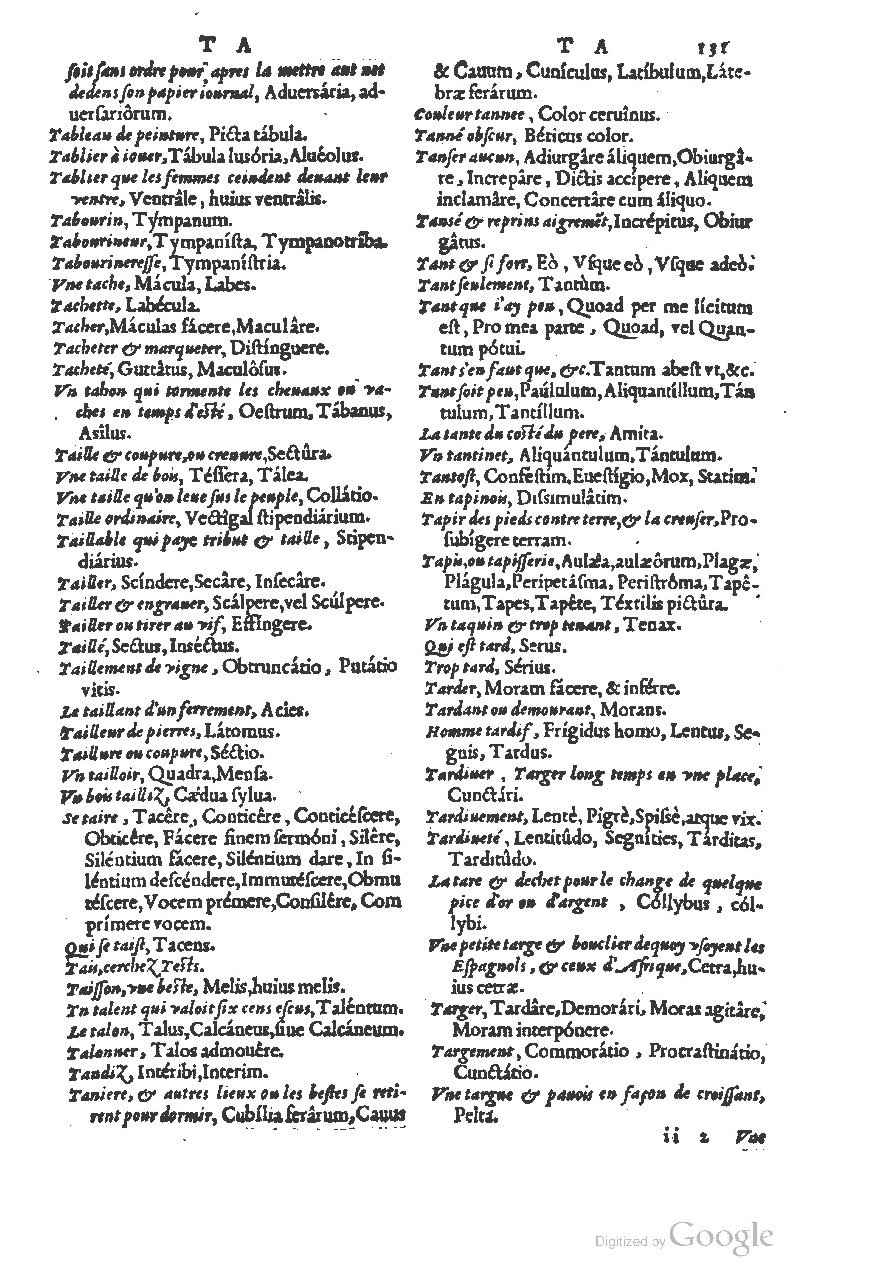 T A
ſoit ſans ordre pour apres la mettre au net
dedens ſon papier iournal, Aduersária, ad-
uerſariôrum.
Tableau de peinture, Picta tábula.
Tablier à iouer, Tábula luſória, Aluéolus.
Tablier que les femmes ceindent deuant leur
ventre, Ventrâle, huius ventrâlis.
Tabourin, Týmpanum.
Tabourineur, Tympaníſta, Tympanotríba.
Tabourinereſſe, Tympaníſtria.
Vne tache, Mácula, Labes.
Tachette, Labécula.
Tacher, Máculas fácere, Maculâre.
Tacheter & marqueter, Diſtínguere.
Tacheté, Guttâtus, Maculôſus.
Vn tahon qui tormente les cheuaux ou va-
ches en temps d'eſté, Oeſtrum, Tábanus,
Asílus.
Taille & coupure, ou creuure, Sectûra.
Vne taille de bois, Téſſera, Tálea.
Vne taille qu'on leue ſus le peuple, Collátio.
Taille ordinaire, Vectîgal ſtipendiárium.
Taillable qui paye tribut & taille, Stipen-
diárius.
Tailler, Scíndere, Secâre, Inſecâre.
Tailler & engrauer, Scálpere, vel Scúlpere.
Tailler ou tirer au vif, Effíngere.
Taillé, Sectus, Inséctus.
Taillement de vigne, Obtruncátio, Putátio
vitis.
Le taillant d'un ferrement, Acies.
Tailleur de pierres, Látomus.
Taillure ou coupure, Séctio.
Vn tailloir, Quadra, Menſa.
Vn bois tailliz, Cædua ſylua.
Se taire, Tacêre, Conticêre, Conticéſcere,
Obticêre, Fácere finem ſermóni, Silêre,
Siléntium fácere, Siléntium dare, In ſi-
léntium deſcéndere, Immutéſcere, Obmu
téſcere, Vocem prémere, Conſilêre, Com
prímere vocem.
Qui ſe taiſt, Tacens.
Tais, cerchez Teſts.
Taiſſon, vne beſte, Melis, huius melis.
Vn talent qui valoit ſix cens eſcus, Taléntum.
Le talon, Talus, Calcáneus, ſiue Calcáneum.
Talonner, Talos admouêre.
Tandiz, Intéribi, Interim.
Taniere, & autres lieux ou les beſtes ſe reti-
rent pour dormir, Cubília ferârum, Cauus
T A 131
& Cauum, Cunículus, Latíbulum, Láte-
bræ ferárum.
Couleur tannee, Color ceruînus.
Tanné obſcur, Béticus color.
Tanſer aucun, Adiurgâre áliquem, Obiurgâ-
re, Increpâre, Dictis accípere, Aliquem
inclamâre, Concertâre cum áliquo.
Tansé & reprins aigremẽt, Incrépitus, Obiur
gâtus.
Tant & ſi fort, Eò, Vſque eò, Vſque adeò.
Tant ſeulement, Tantùm.
Tant que i'ay peu, Quoad per me lícitum
eſt, Pro mea parte, Quoad, vel Quan-
tum pótui.
Tant s'en faut que, &c. Tantum abeſt vt, &c.
Tant ſoit peu, Paúlulum, Aliquantíllum, Tán
tulum, Tantíllum.
La tante du coſté du pere, Amita.
Vn tantinet, Aliquántulum, Tántulum.
Tantoſt, Conféſtim, Eueſtígio, Mox, Statim.
En tapinois, Diſsimulâtim.
Tapir des pieds contre terre, & la creuſer, Pro-
ſubígere terram.
Tapis, ou tapiſſerie, Aulæa, aulæôrum, Plagæ,
Plágula, Peripetáſma, Periſtrôma, Tapê-
tum, Tapes, Tapête, Téxtilis pictûra.
Vn taquin & trop tenant, Tenax.
Qui eſt tard, Serus.
Trop tard, Sérius.
Tarder, Moram fácere, & inférre.
Tardant ou demourant, Morans.
Homme tardif, Frígidus homo, Lentus, Se-
gnis, Tardus.
Tardiuer, Targer long temps en vne place,
Cunctári.
Tardiuement, Lentè, Pigrè, Spiſsè, atque vix.
Tardiueté, Lentitûdo, Segníties, Tárditas,
Tarditûdo.
La tare & dechet pour le change de quelque
pice d'or ou d'argent, Cóllybus, cól-
lybi.
Vne petite targe & bouclier dequoy vſoyent les
Eſpagnols, & ceux d'Afrique, Cetra, hu-
ius cetræ.
Targer, Tardâre, Demorári, Moras agitâre,
Moram interpónere.
Targement, Commorátio, Procraſtinátio,
Cunctátio.
Vne targue & pauois en façon de croiſſant,
Pelta.
ii 2 Vne
Digitized by Google